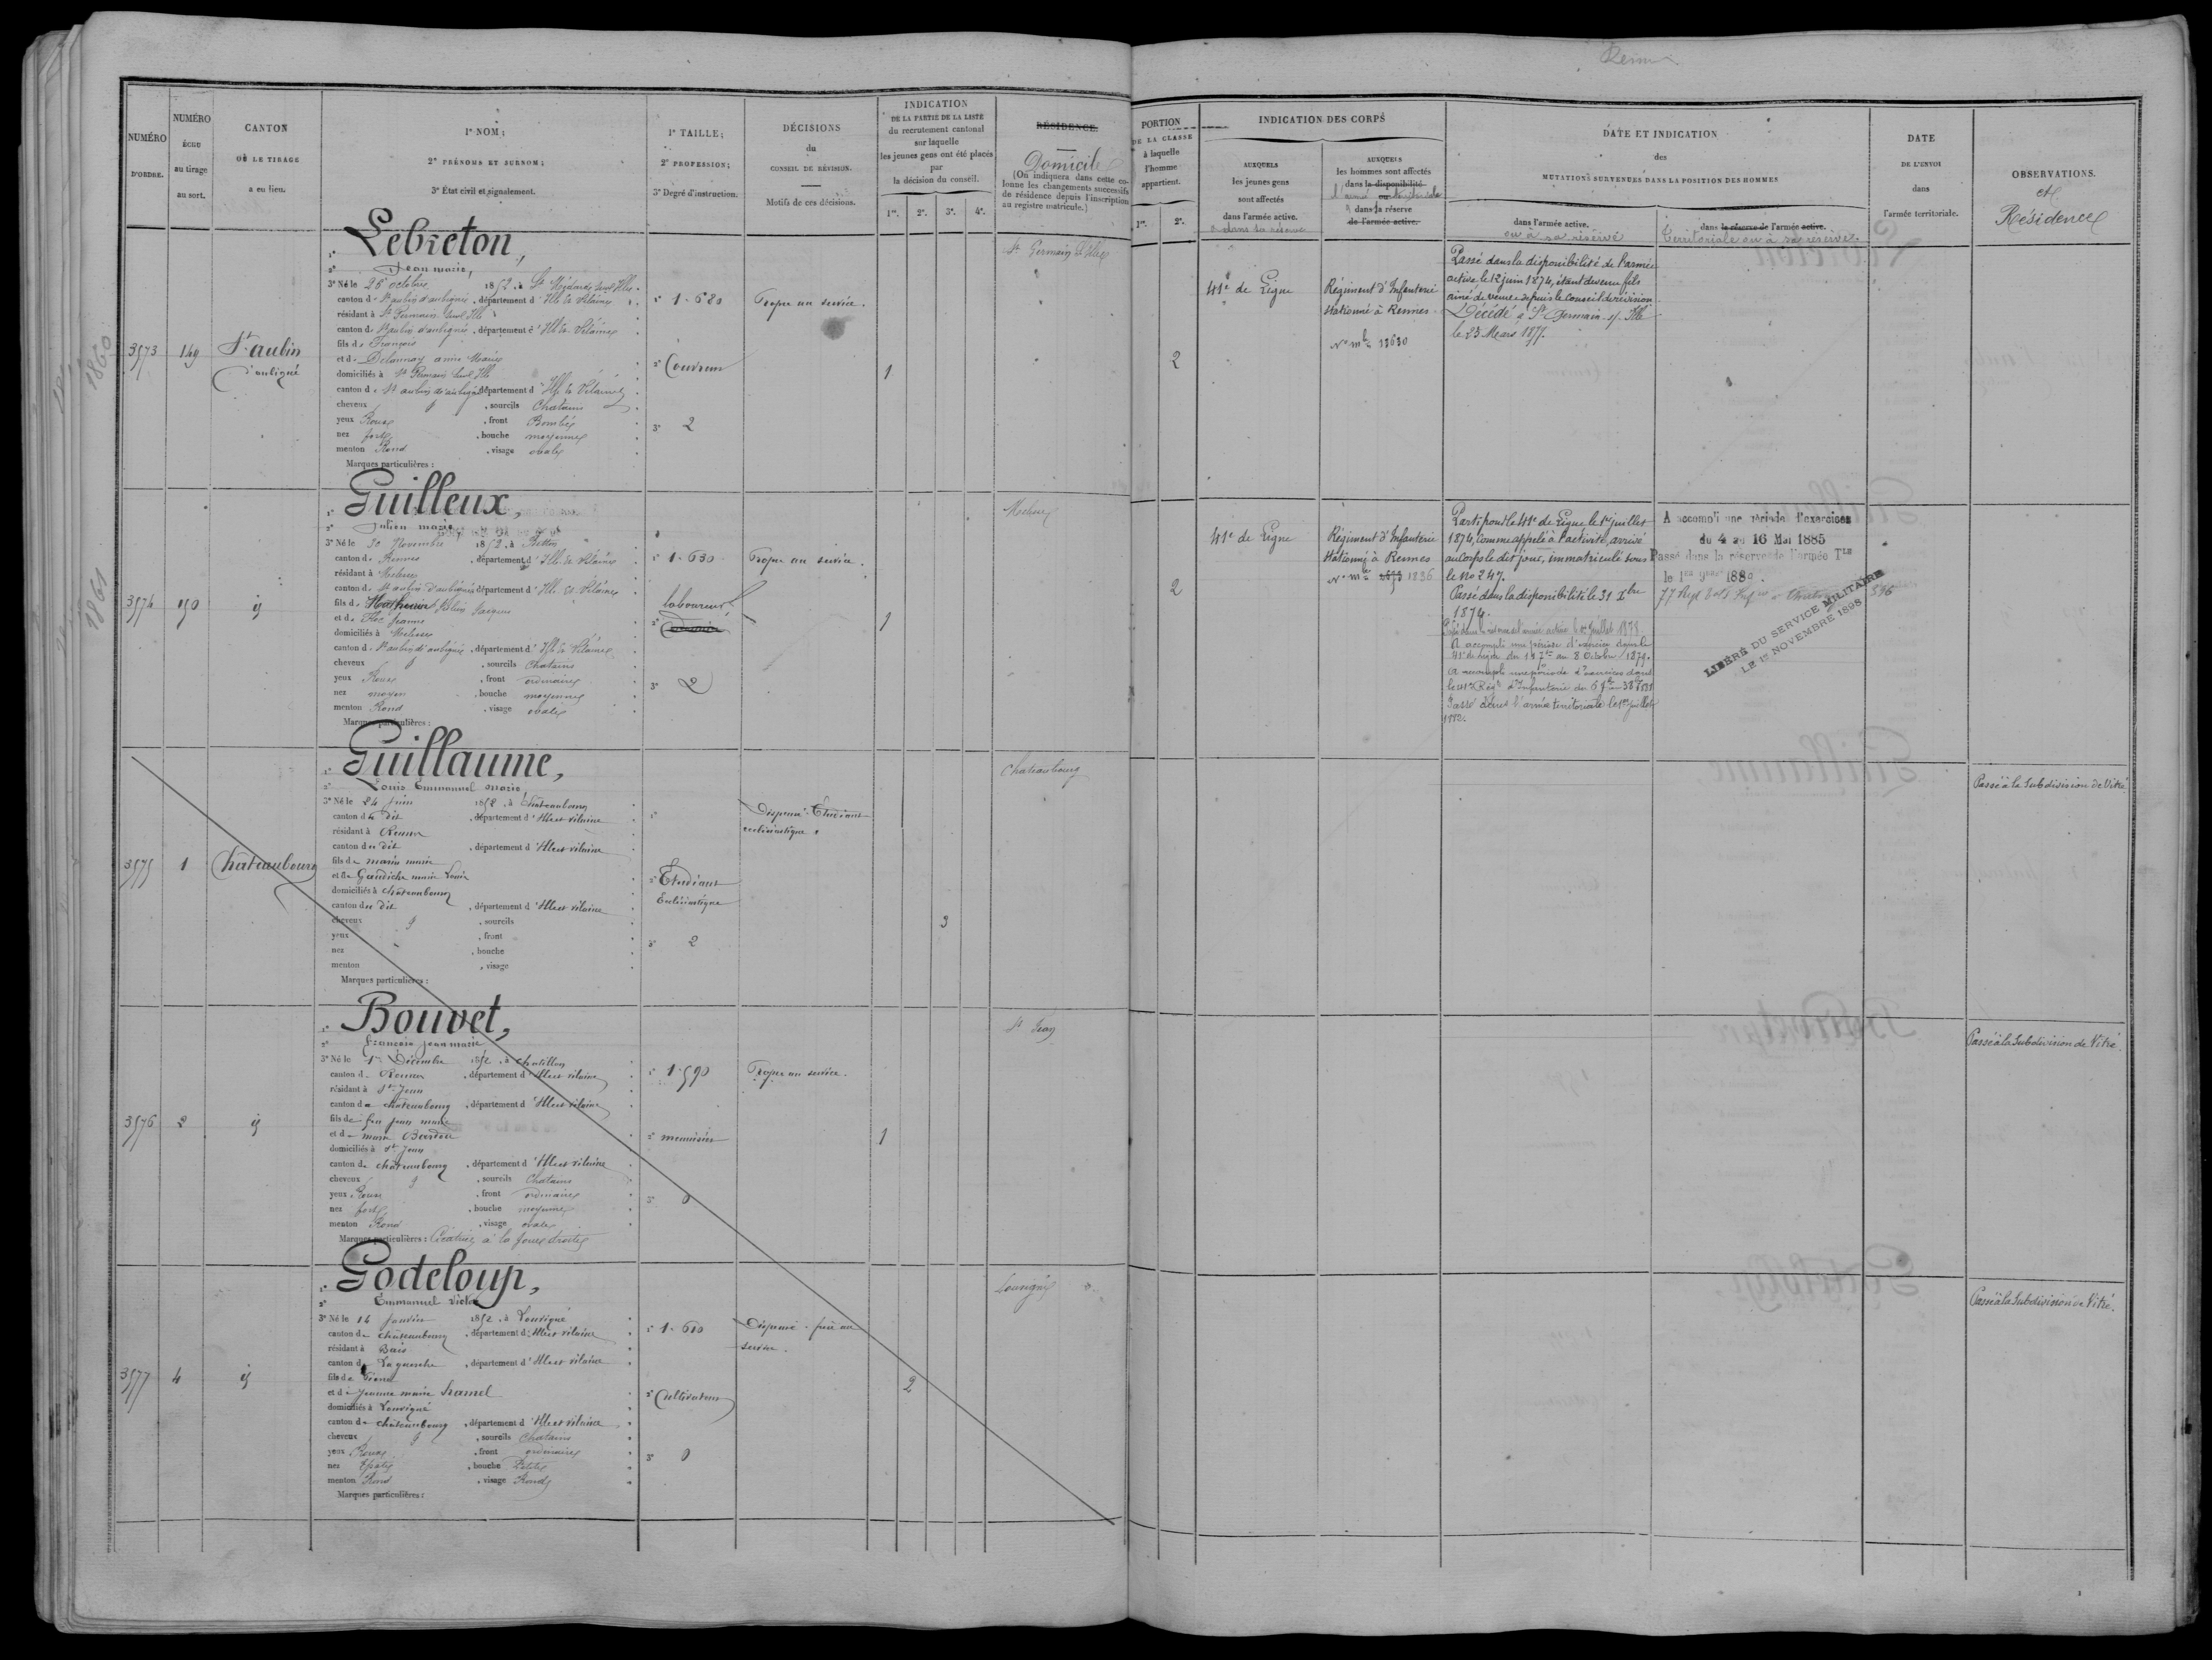 Rennes
NUMÉRO
D'ORDRE.
NUMÉRO
ÉCHU
au tirage
au sort.
CANTON
OÙ LE TIRAGE
a eu lieu.
1° NOM;
2° PRÉNOMS ET SURNOM;
3° État civil et signalement.
1° TAILLE;
2° PROFESSION;
3° Degré d'instruction.
DÉCISIONS
du
CONSEIL DE RÉVISION.
Motifs de ces décisions.
INDICATION
DE LA PARTIE DE LA LISTE
du recrutement cantonal
sur laquelle
les jeunes gens ont été placés
par
la décision du conseil.
1re. 2e. 3e. 4e.
RÉSIDENCE.
Domicile
(On indiquera dans cette co-
lonne les changements successifs
de résidence depuis l'inscription
au registre matricule.)
PORTION
DE LA CLASSE
à laquelle
l'homme
appartient.
1re. 2e.
INDICATION DES CORPS
AUXQUELS
les jeunes gens
sont affectés
dans l'armée active.
ou dans sa réserve
AUXQUELS
les hommes sont affectés
dans la disponibilité
ou
dans la réserve
de l'armée active.
DATE ET INDICATION
des
MUTATIONS SURVENUES DANS LA POSITION DES HOMMES
dans l'armée active.
ou à sa réserve
dans la réserve de l'armée active.
Territoriale ou à sa réserve.
DATE
DE L'ENVOI
dans
l'armée territoriale.
OBSERVATIONS.
et
Résidence
3573
149
St aubin
d'aubigné
1° Lebreton,
2° Jean marie,
3° Né le 26 octobre 1852, à St Médard sur Ille.
canton de St aubin d'aubigné, département d'Ille & Vilaine.
résidant à St Germain sur Ille
canton de St aubin d'aubigné, département d'Ille & Vilaine
fils de François
et de Delaunay anne Marie
domiciliés à St Germain sur Ille
canton de St aubin d'aubigné département d'Ille & Vilaine
cheveux , sourcils Chatains
yeux Roux , front Bombé
nez fort , bouche moyenne
menton Rond , visage ovale
Marques particulières :
1° 1.680
2° Couvreur
3° 2
Propre au service.
1
St Germain s Ille
2
41e de Ligne
Régiment d'Infanterie
stationné à Rennes
No mle 18680
Passé dans la disponibilité de l'armée
active le 12 juin 1874, étant devenu fils
ainé de veuve depuis le conseil de révision
Décédé à St Germain s/ Ille
le 23 Mars 1877.
3574
150
id
1° Guilleux,
2° Julien marie
3° Né le 30 Novembre 1852, à Betton
canton de Rennes , département d'Ille & Vilaine
résidant à Melesse
canton de St aubin d'aubigné département d'Ille & Vilaine
fils de Mathurin Julien Jacques
et de Jeanne
domiciliés à Melesse
canton de St aubin d'aubigné, département d'Ille & Vilaine
cheveux , sourcils Chatains
yeux Roux , front ordinaire
nez moyen , bouche moyenne
menton Rond , visage ovale
Marques particulières :
1° 1.630
2° laboureur
3° 2
Propre au service.
1
Melesse
2
41e de Ligne
Régiment d'Infanterie
stationné à Rennes
No mle 1836
Parti pour le 41e de Ligne le 1er juillet
1874, comme appelé à l'activité, arrivé
au corps le dit jour, immatriculé sous
le No 247.
Passé dans la disponibilité le 31 Xbre
1874.
Passé dans la réserve de l'armée active le 1er Juillet 1878.
A accompli une période d'exercices dans le
41e de Ligne du 11 7bre au 8 Octobre 1879.
A accompli une période d'exercices dans
le 41e Régt d'Infanterie du
Passé dans l'armée territoriale le 1er juillet
1882.
A accompli une période d'exercices
du 4 au 16 Mai 1885
Passé dans la réserve de l'armée Tle
le 1er 9bre 188
77 Regt
LIBÉRÉ DU SERVICE MILITAIRE
LE 1er NOVEMBRE 1898
3575
1
Chateaubourg
1° Guillaume,
2° Louis Emmanuel marie,
3° Né le 24 Juin 1852, à Chateaubourg
canton du dit , département d'Ille et vilaine
résidant à Rennes
canton du dit , département d'Ille et vilaine
fils de marin marie
et de Gaudiche marie Louise
domiciliés à Châteaubourg
canton du dit , département d'Ille et vilaine
cheveux , sourcils
yeux , front
nez , bouche
menton , visage
Marques particulières :
2° Etudiant
Ecclésiastique
3° 2
Dispensé. Etudiant
ecclésiastique.
3
Chateaubourg
Passé à la Subdivision de Vitré.
3576
2
id
1° Bouvet,
2° François jean marie
3° Né le 1er Décembre 1852, à Chatillon
canton de Rennes , département d'Ille et vilaine
résidant à St Jean
canton de châteaubourg , département d'Ille et vilaine
fils de feu jean marie
et de marie
domiciliés à St Jean
canton de châteaubourg , département d'Ille et vilaine
cheveux , sourcils Chatains
yeux Roux , front ordinaire
nez fort , bouche moyenne
menton Rond , visage ovale
Marques particulières : Cicatrice à la joue droite
1° 1.590
2° menuisier
3° 0
Propre au service.
1
St Jean
Passé à la Subdivision de Vitré.
3577
4
id
1° Godeloup,
2° Emmanuel victor
3° Né le 14 Janvier 1852, à Louvigné
canton de châteaubourg , département d'Ille et vilaine
résidant à Bais
canton de La guerche , département d'Ille et vilaine
fils de Pierre
et de Jeanne marie hamel
domiciliés à Louvigné
canton de châteaubourg , département d'Ille et vilaine
cheveux , sourcils Chatains
yeux Roux , front ordinaire
nez Epaté , bouche Petite
menton Rond , visage Rond
Marques particulières :
1° 1.610
2° Cultivateur
3° 0
Dispensé. frère au
service.
2
Louvigné
Passé à la Subdivision de Vitré.
1860
1861